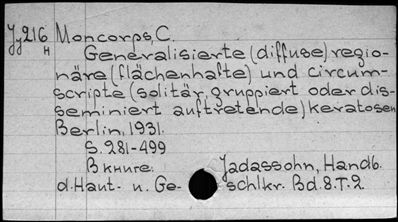 Jy216 Moncorps, C.
H
Generalisierte (diffuse) regio-
näre (flächenhafte) und circum-
scripte (solitär, gruppiert oder dis-
seminiert auftretende) keratosen
Berlin, 1931.
S. 281-499
В книге: Jadassohn, Handb.
d. Haut- u. Ge- schlkr. Bd. 8. T. 2